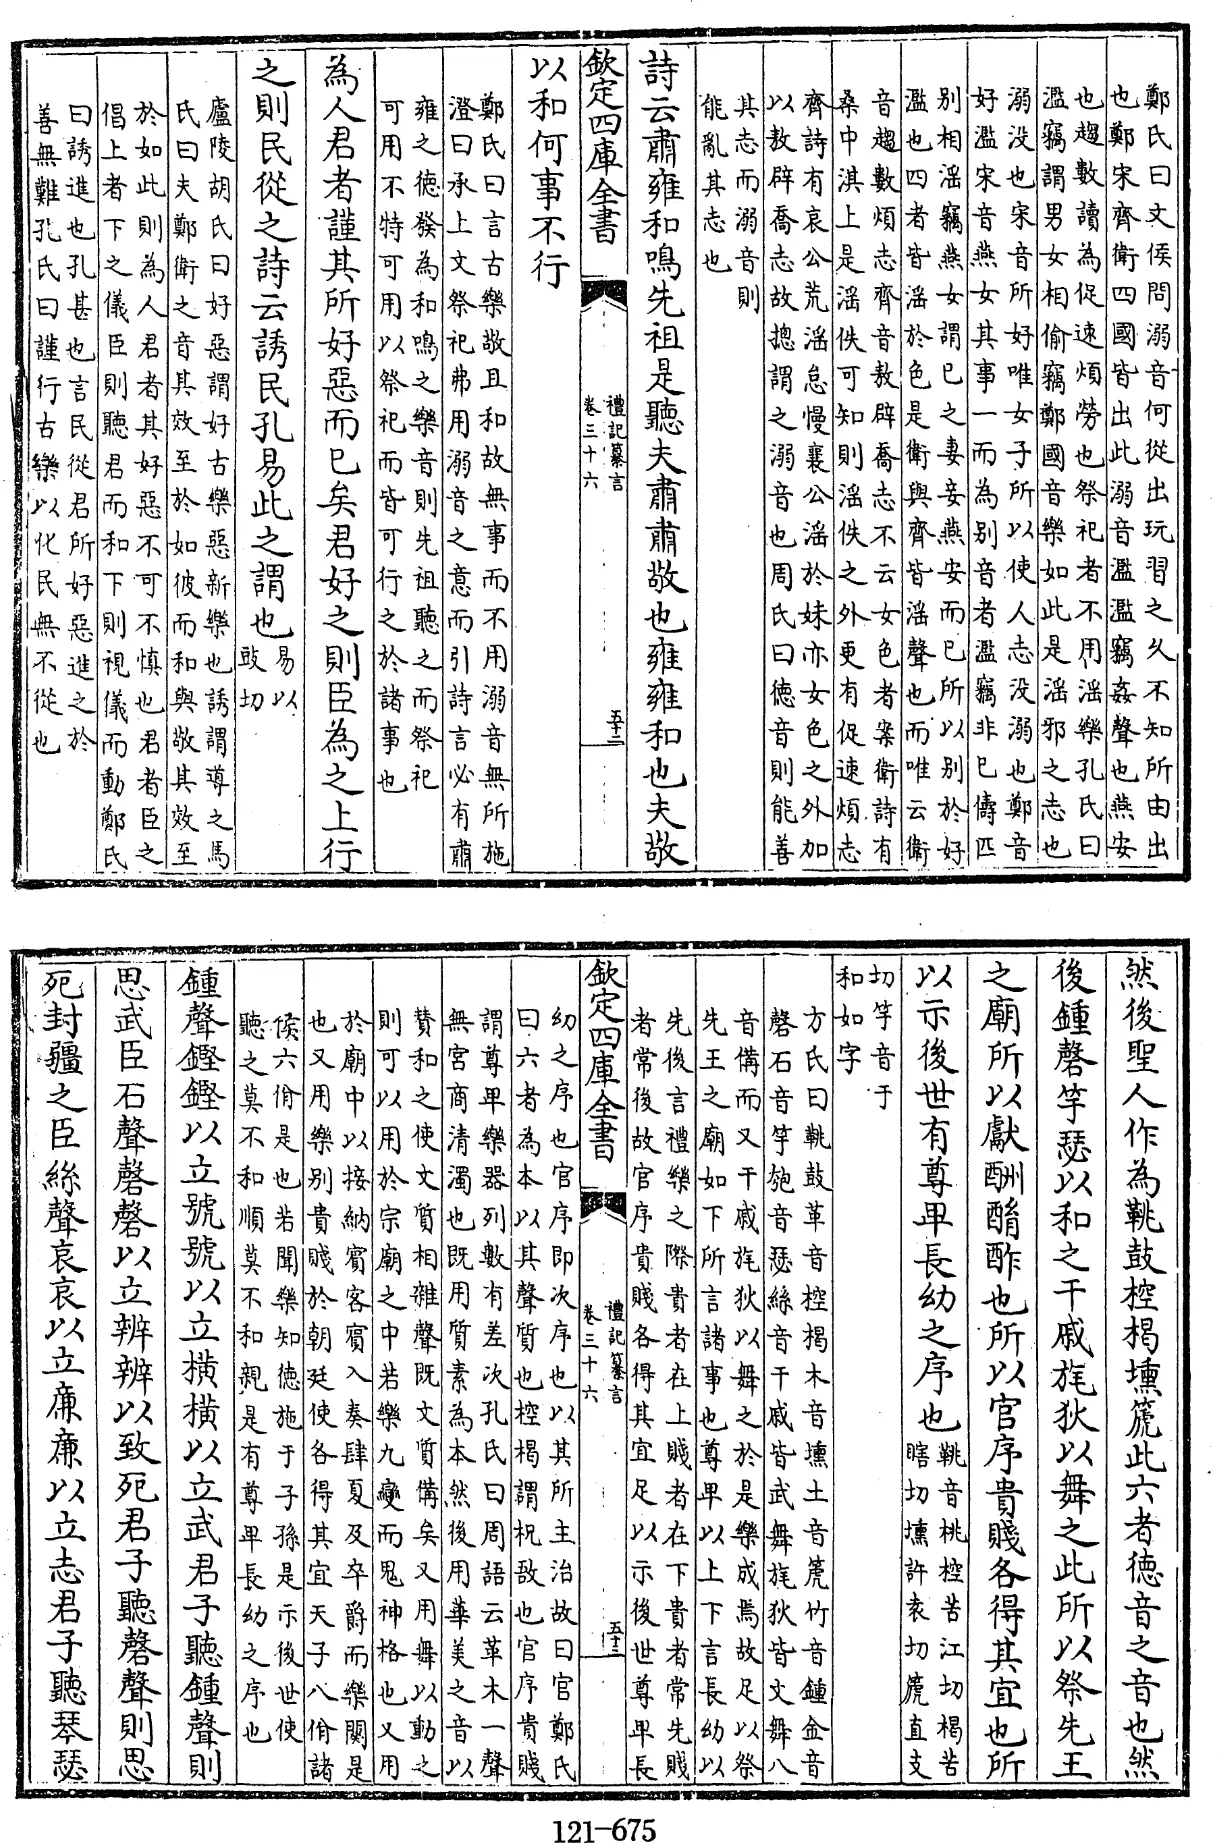 鄭氏曰文侯問溺音何從出玩習之久不知所由出
也鄭宋齊衛四國皆出此溺音濫濫竊姦聲也燕安
也趨數讀為促速煩勞也祭祀者不用淫樂孔氏曰
濫竊謂男女相偷竊鄭國音樂如此是淫邪之志也
溺沒也宋音所好唯女子所以使人志沒溺也鄭音
好濫宋音燕女其事一而為別音者濫竊非已儔匹
別相淫竊燕女謂已之妻妾燕安而已所以別於好
濫也四者皆淫於色是衛與齊皆淫聲也而唯云衛
音趨數煩志齊音敖辟喬志不云女色者案衛詩有
桑中淇上是淫佚可知則淫佚之外更有促速煩志
齊詩有哀公荒淫怠慢襄公淫於妹亦女色之外加
以敖辟喬志故摠謂之溺音也周氏曰徳音則能善
其志而溺音則
能亂其志也
詩云肅雍和鳴先祖是聽夫肅肅敬也雍雍和也夫敬
欽定四庫全書
禮記纂言
卷三十六
五十二
以和何事不行
鄭氏曰言古樂敬且和故無事而不用溺音無所施
澄曰承上文祭祀弗用溺音之意而引詩言必有肅
雍之徳發為和鳴之樂音則先祖聽之而祭祀
可用不特可用以祭祀而皆可行之於諸事也
為人君者謹其所好惡而已矣君好之則臣為之上行
之則民從之詩云誘民孔易此之謂也易以
豉切
廬陵胡氏曰好惡謂好古樂惡新樂也誘謂導之馬
氏曰夫鄭衛之音其效至於如彼而和與敬其效至
於如此則為人君者其好惡不可不慎也君者臣之
倡上者下之儀臣則聽君而和下則視儀而動鄭氏
曰誘進也孔甚也言民從君所好惡進之於
善無難孔氏曰謹行古樂以化民無不從也
然後聖人作為鞉鼓椌楬壎箎此六者徳音之音也然
後鍾磬竽瑟以和之干戚旄狄以舞之此所以祭先王
之廟所以獻酬酳酢也所以官序貴賤各得其宜也所
以示後世有尊卑長幼之序也鞉音桃椌苦江切楬苦
瞎切壎許袁切箎直支
切竽音于
和如字
方氏曰鞉鼓革音椌楬木音壎土音箎竹音鍾金音
磬石音竽匏音瑟絲音干戚皆武舞旄狄皆文舞八
音備而又干戚旄狄以舞之於是樂成焉故足以祭
先王之廟如下所言諸事也尊卑以上下言長幼以
先後言禮樂之際貴者在上賤者在下貴者常先賤
者常後故官序貴賤各得其宜足以示後世尊卑長
欽定四庫全書
禮記纂言
卷三十六
五十三
幼之序也官序即次序也以其所主治故曰官鄭氏
曰六者為本以其聲質也椌楬謂柷敔也官序貴賤
謂尊卑樂器列數有差次孔氏曰周語云革木一聲
無宮商清濁也既用質素為本然後用華美之音以
贊和之使文質相雜聲既文質備矣又用舞以動之
則可以用於宗廟之中若樂九變而鬼神格也又用
於廟中以接納賓客賓入奏肆夏及卒爵而樂闋是
也又用樂別貴賤於朝廷使各得其宜天子八佾諸
侯六佾是也若聞樂知徳施于子孫是示後世使
聽之莫不和順莫不和親是有尊卑長幼之序也
鍾聲鏗鏗以立號號以立橫橫以立武君子聽鍾聲則
思武臣石聲磬磬以立辨辨以致死君子聽磬聲則思
死封疆之臣絲聲哀哀以立亷亷以立志君子聽琴瑟
121-675